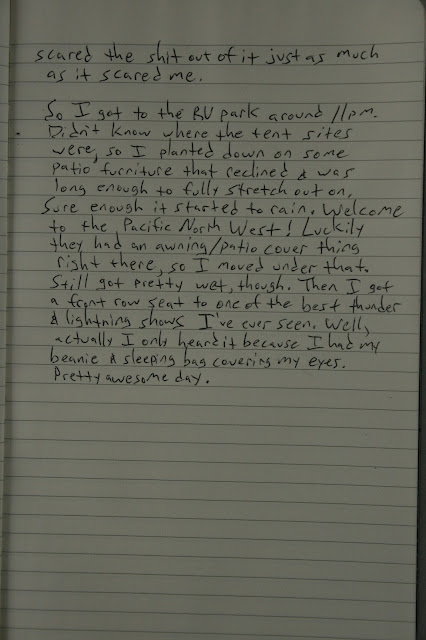 scared the shit out of it just as much
as it scared me.
So I got to the RV park around 11pm.
Didn't know where the tent sites
were, so I planted down on some
patio furniture that reclined & was
long enough to fully stretch out on.
Sure enough it started to rain. Welcome
to the Pacific North West! Luckily
they had an awning/patio cover thing
right there, so I moved under that.
Still got pretty wet, though. Then I got
a front row seat to one of the best thunder
& lightning shows I've ever seen. Well,
actually I only heard it because I had my
beanie & sleeping bag covering my eyes.
Pretty awesome day.